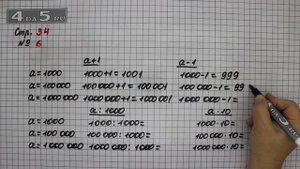 4da5.ru
Стр. 34
№ 6
a+1 a-1
a=1000 1000+1=1001 1000-1=999
a=100000 100000+1=100001 100 000-1=99
a=1000000 1000000+1=1000001 1000 000-1=
a:1000 a·10
a=1000 1000:1000= 1000·10=
a=100 000 100 000:1000= 100000·10=
a=1000 000 1000000:1000= 1000000·10=